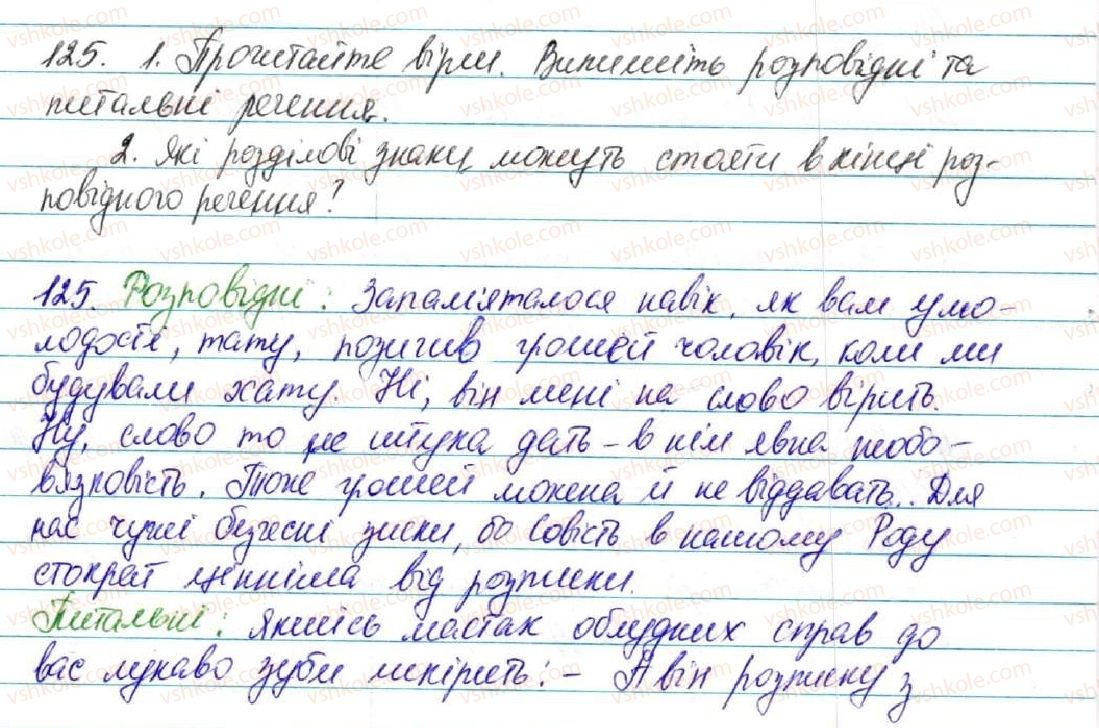 125. 1. Прочитайте вірш. Випишіть розповідні та
питальні речення.
2. Які розділові знаки можуть стояти в кінці роз-
повідного речення?
125. Розповідні: Запам'яталося навік, як вам у мо-
лодості, тату, позичив грошей чоловік, коли ми
будували хату. Ні, він мені на слово вірить.
Ну, слово то не штука дать – в нім явна необо-
в'язковість. Тож грошей можна й не віддавать.. Для
нас чужі безчесні зиски, бо Совість в нашому Роду
стократ цінніша від розписки.
Питальні: Якийсь мастак облудних справ до
вас лукаво зуби шкірить: – А він розписку з